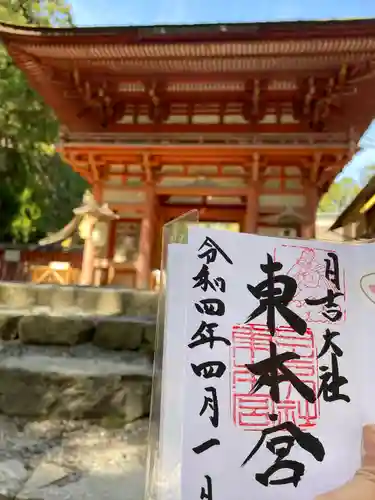 日吉大社
東本宮
令和四年四月一日